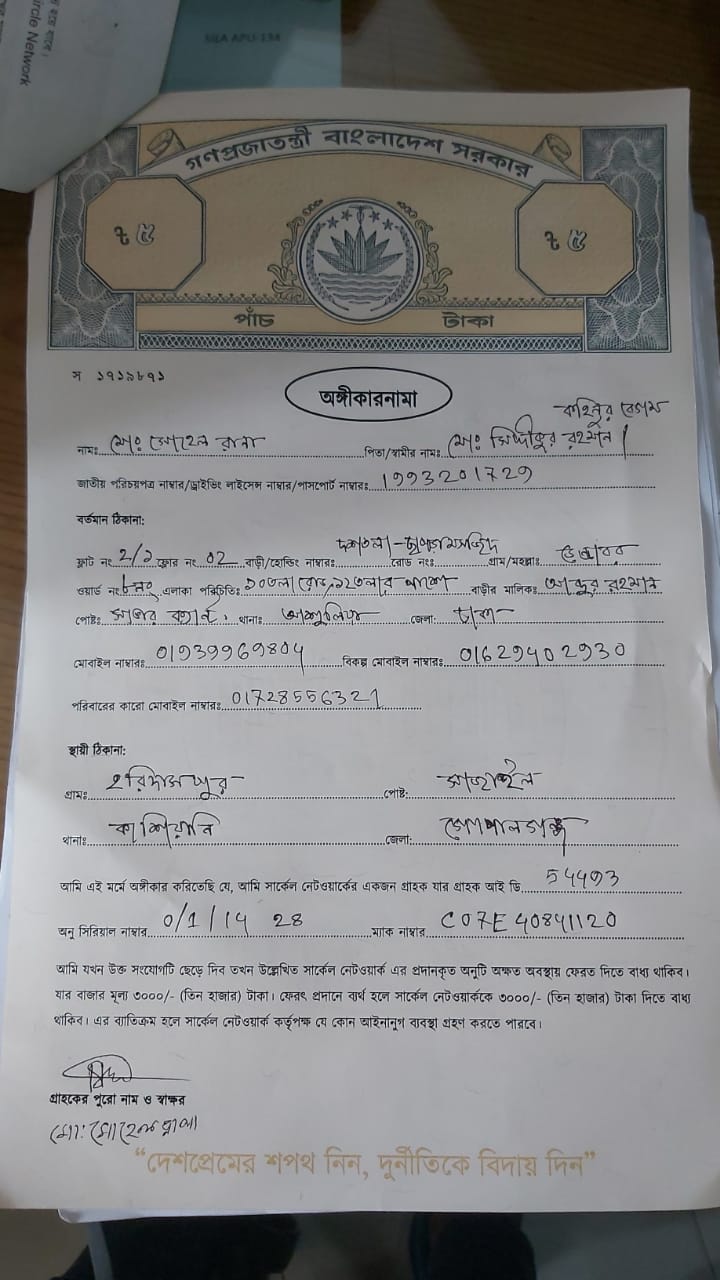 হতে হবে।
ircle Network
SILA APLI-134
গণপ্রজাতন্ত্রী বাংলাদেশ সরকার
৳ ৫
৳ ৫
পাঁচ টাকা
স ১৭১৯৮৭১
অঙ্গীকারনামা
কহিনুর বেগম
নামঃ মোঃ সোহেল রানা পিতা/স্বামীর নামঃ মোঃ সিদ্দীকুর রহমান
জাতীয় পরিচয়পত্র নাম্বার/ড্রাইভিং লাইসেন্স নাম্বার/পাসপোর্ট নাম্বারঃ 1993201729
বর্তমান ঠিকানা:
ফ্লাট নং 2/১ ফ্লোর নং 02 বাড়ী/হোল্ডিং নাম্বারঃ দশতলা- রোড নংঃ গ্রাম/মহল্লাঃ
ওয়ার্ড নংঃ ৮নং এলাকা পরিচিতিঃ ১০তলা রোড, ১২তলার পাশে বাড়ীর মালিকঃ আব্দুর রহমান
পোষ্টঃ সাভার ক্যান্ট. থানাঃ আশুলিয়া জেলা: ঢাকা
মোবাইল নাম্বারঃ 01939969804 বিকল্প মোবাইল নাম্বারঃ 01629402930
পরিবারের কারো মোবাইল নাম্বারঃ 01728556321
স্থায়ী ঠিকানা:
গ্রামঃ হরিদাসপুর পোষ্ট: সাজাইল
থানাঃ কাশিয়ানি জেলা: গোপালগঞ্জ
আমি এই মর্মে অঙ্গীকার করিতেছি যে, আমি সার্কেল নেটওয়ার্কের একজন গ্রাহক যার গ্রাহক আই ডি 54493
অনু সিরিয়াল নাম্বার 0/1/14 28 ম্যাক নাম্বার C07E40841120
আমি যখন উক্ত সংযোগটি ছেড়ে দিব তখন উল্লেখিত সার্কেল নেটওয়ার্ক এর প্রদানকৃত অনুটি অক্ষত অবস্থায় ফেরত দিতে বাধ্য থাকিব।
যার বাজার মূল্য ৩০০০/- (তিন হাজার) টাকা। ফেরৎ প্রদানে ব্যর্থ হলে সার্কেল নেটওয়ার্ককে ৩০০০/- (তিন হাজার) টাকা দিতে বাধ্য
থাকিব। এর ব্যতিক্রম হলে সার্কেল নেটওয়ার্ক কর্তৃপক্ষ যে কোন আইনানুগ ব্যবস্থা গ্রহণ করতে পারবে।
গ্রাহকের পুরো নাম ও স্বাক্ষর
মো: সোহেল রানা
“দেশপ্রেমের শপথ নিন, দুর্নীতিকে বিদায় দিন”